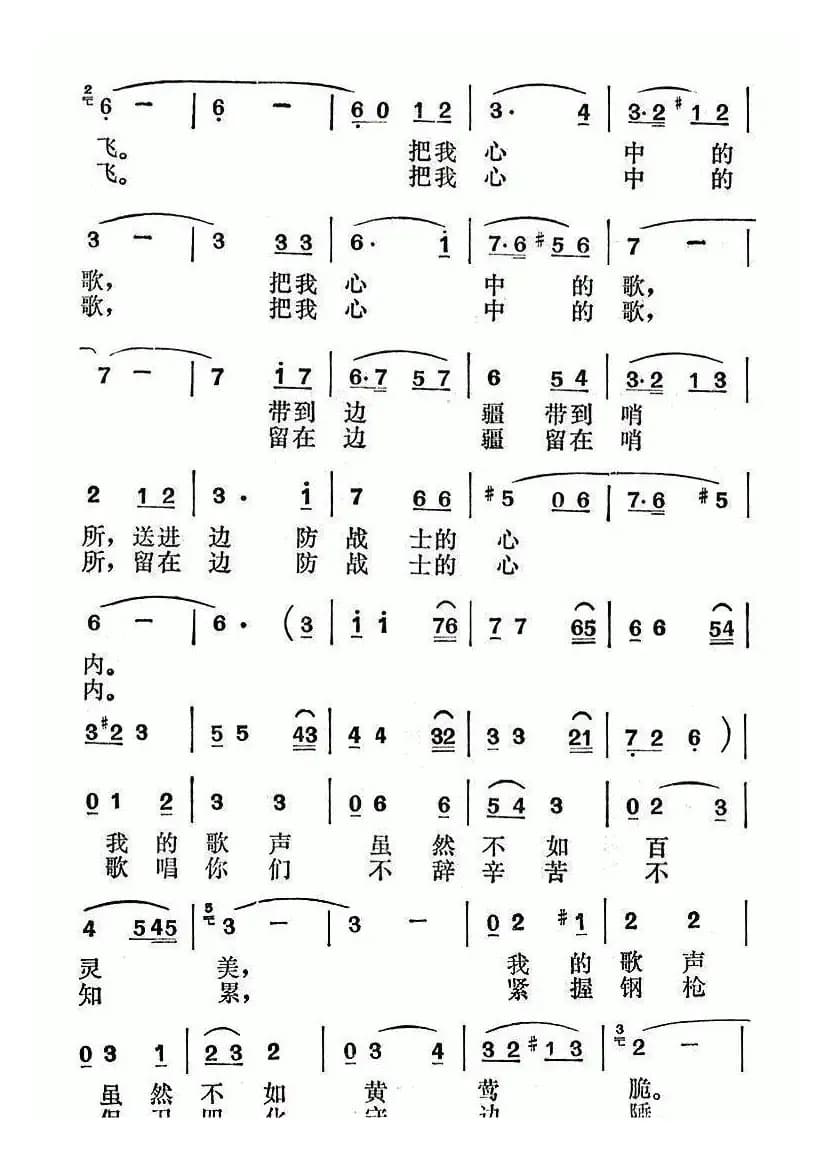 2 6 — | 6 — | 6 0 1 2 | 3· 4 | 3·2 #1 2
飞。 把我 心 中 的
飞。 把我 心 中 的
3 — | 3 3 3 | 6· i | 7·6 #5 6 | 7 —
歌， 把我 心 中 的 歌，
歌， 把我 心 中 的 歌，
7 — | 7 i 7 | 6·7 5 7 | 6 5 4 | 3·2 1 3
带到 边 疆 带到 哨
留在 边 疆 留在 哨
2 1 2 | 3· i | 7 6 6 | #5 0 6 | 7·6 #5
所，送进 边 防 战 士的 心
所，留在 边 防 战 士的 心
6 — | 6· (3 | i i 76 | 7 7 65 | 6 6 54
内。
内。
3 #2 3 | 5 5 43 | 4 4 32 | 3 3 21 | 7 2 6 )
0 1 2 | 3 3 | 0 6 6 | 5 4 3 | 0 2 3
我 的 歌 声 虽 然 不 如 百
歌 唱 你 们 不 辞 辛 苦 不
4 545 | 5 3 — | 3 — | 0 2 #1 | 2 2
灵 美， 我 的 歌 声
知 累， 紧 握 钢 枪
0 3 1 | 2 3 2 | 0 3 4 | 3 2 #1 3 | 3 2 —
虽 然 不 如 黄 莺 脆。